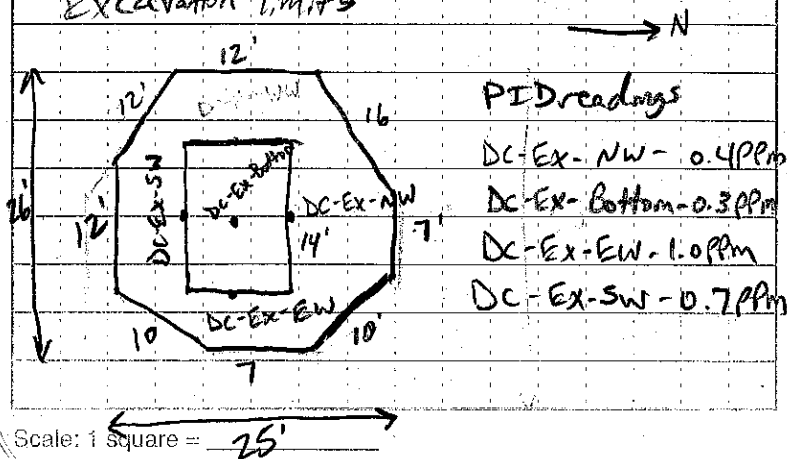 Excavation limits
N
12'
12'
16
26'
12'
DC-Ex-SW
DC-Ex-Bottom
DC-Ex-NW
14'
7'
DC-Ex-EW
10
10'
7
25'
PID readings
DC-Ex-NW- 0.4PPm
DC-Ex-Bottom-0.3PPm
DC-Ex-EW-1.0PPm
DC-Ex-SW-0.7PPm
Scale: 1 square =